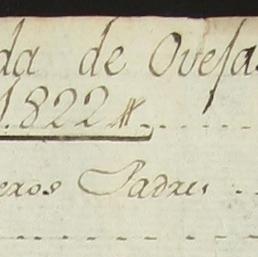 da de Ovejas
1.822
eros Padres